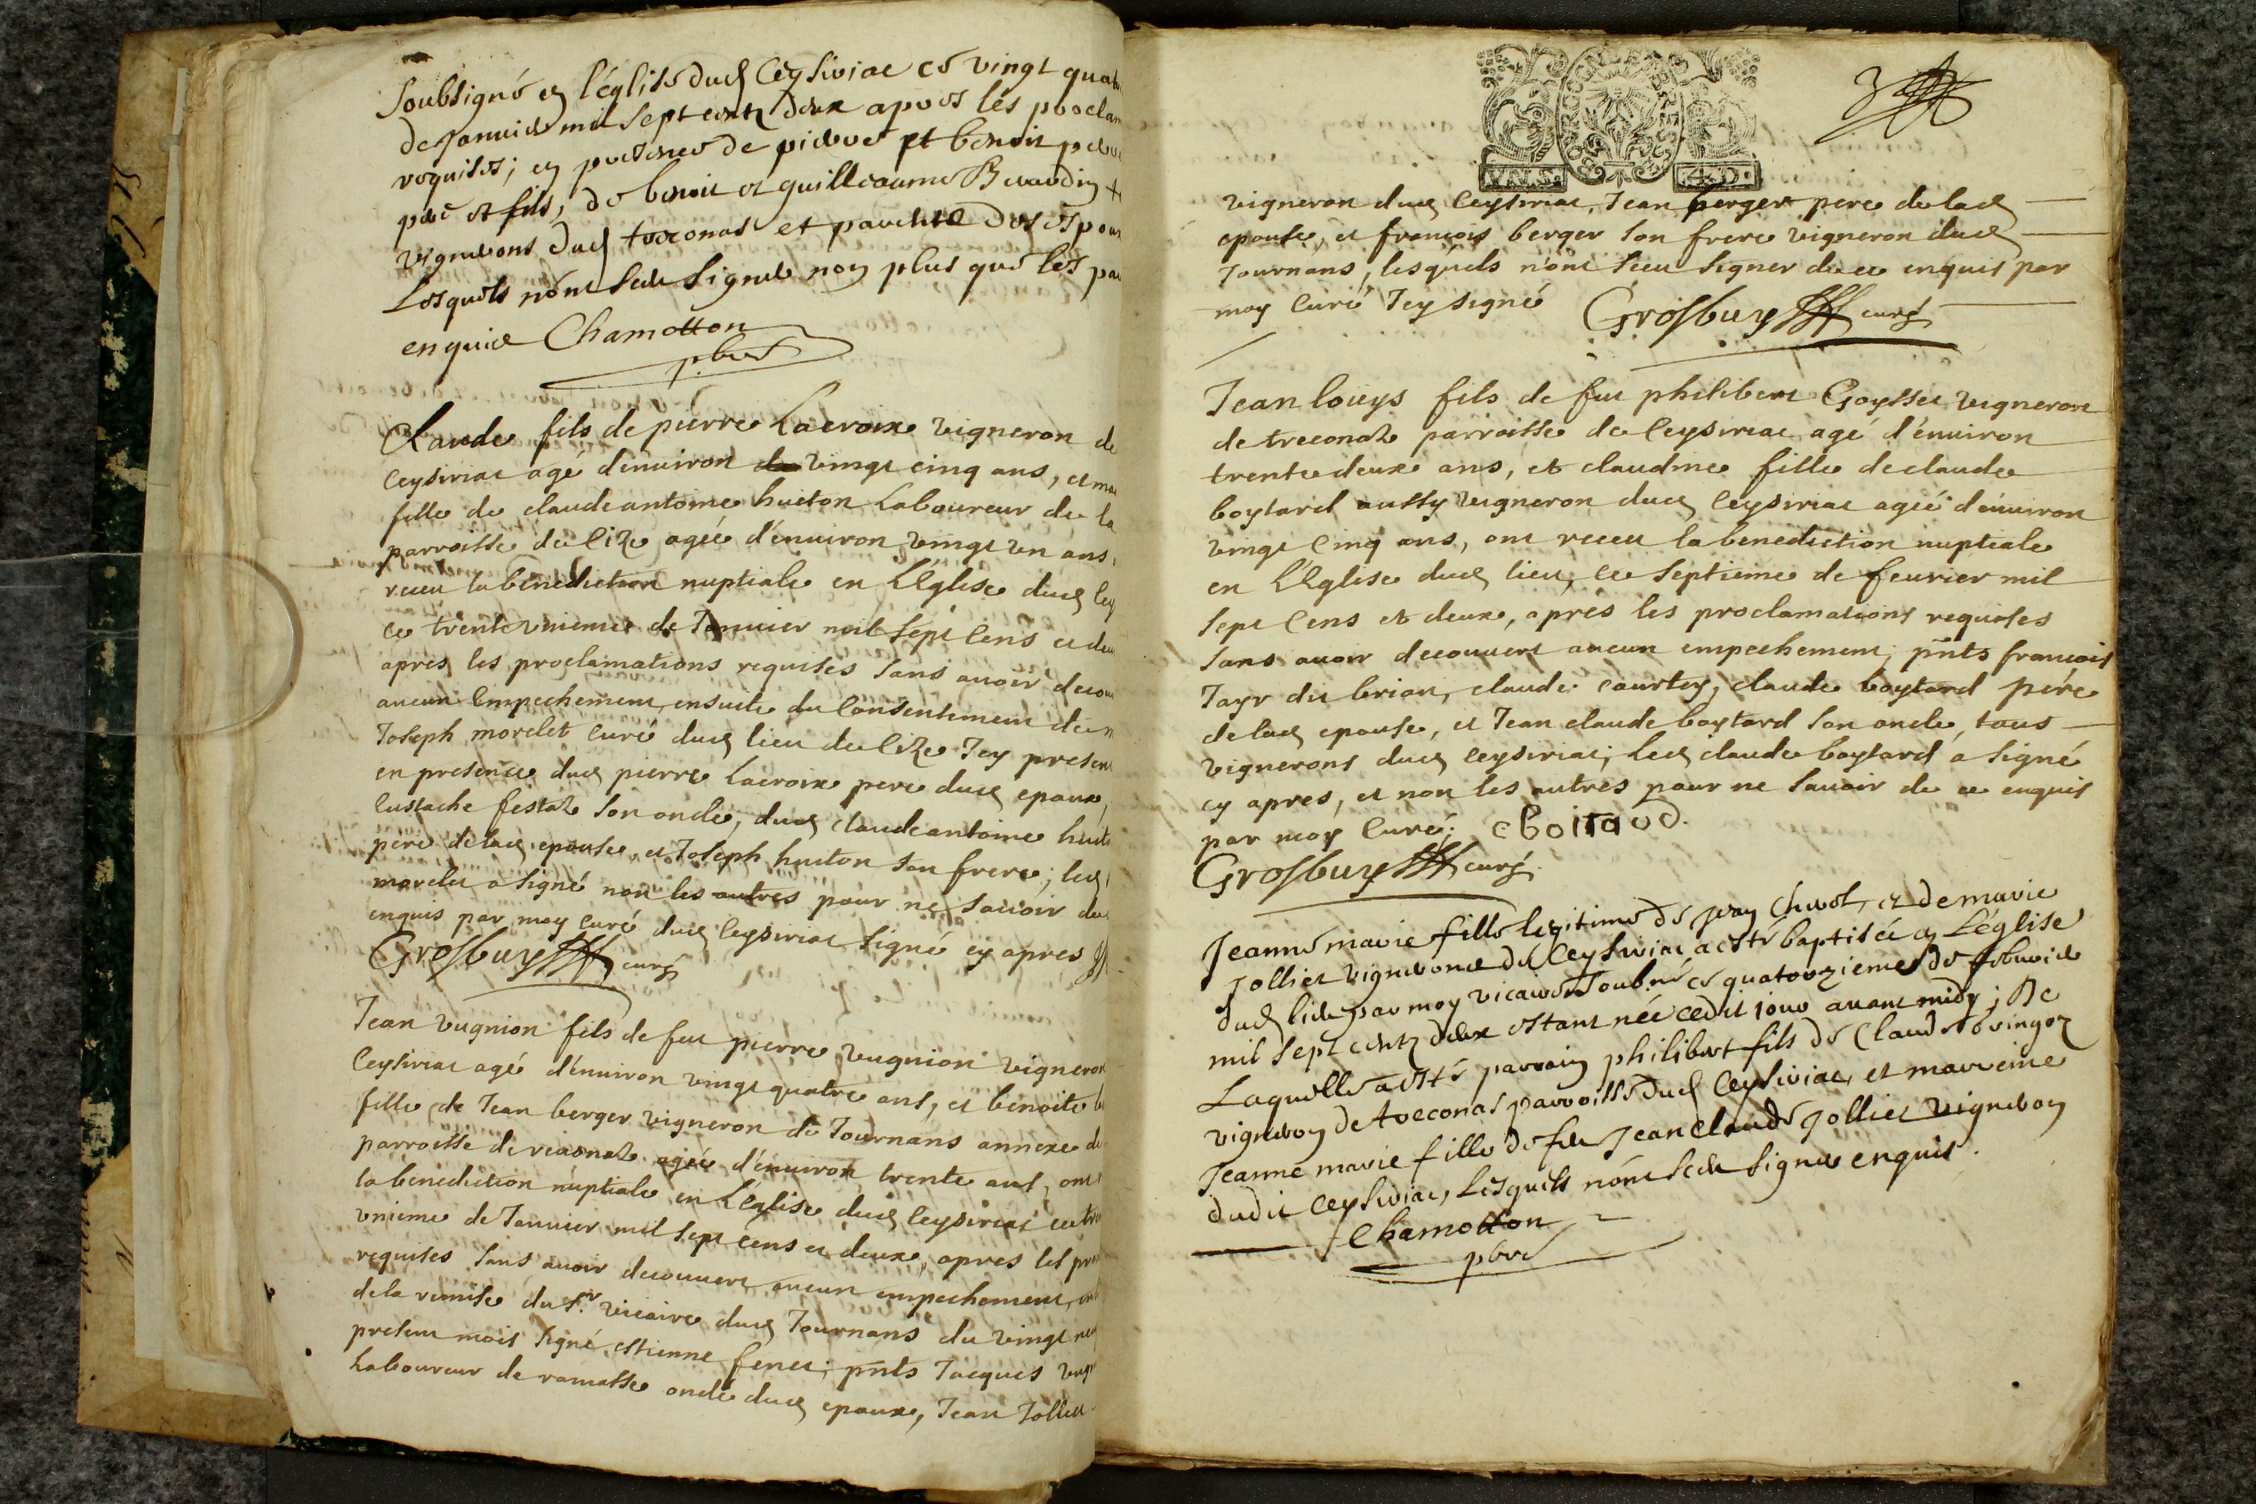 Soubsigné en l'église dud Ceysiriac ce vingt quat
de Januier mil sept centz deux apres les proclam
requises; en presence de pierre et benoit
pere et fils, de benoit et guilleaume Beraudin
vignerons dud treconas et parente des espou
Lesquels n'ont sceu signer non plus que les par
enquis Chamotton
pbre
Claude fils de pierre Lacroix vigneron de
Ceysiriac agé d'enuiron vingt cinq ans, et mar
fille de claude antoine huiton Laboureur de la
parroisse de Cize agée d'enuiron vingt un ans,
receu la benediction nuptiale en L'Eglise dud Cey
ce trente unieme de Januier mil sept Cens et deu
apres les proclamations requises sans auoir decou
aucun Empechement, ensuite du Consentement de
Joseph morelet curé dud lieu de Cize Jcy present
en presence dud pierre Lacroix pere dud epoux,
Eustache festaz son oncle, dud claude antoine huit
pere de lad epouse, et Joseph huiton son frere; led
morelet a signé non les autres pour ne sauoir de
enquis par moy curé dud Ceysiriac signé cy apres
Grosbuy curé
Jean vugnion fils de feu pierre vugnion vigneron
Ceysiriac agé d'enuiron vingt quatre ans, et benoite b
fille de Jean berger vigneron de Tournans annexe de
parroisse de reisonaz agée d'enuiron trente ans, ont
la benediction nuptiale en L'Eglise dud Ceysiriac ce tre
unieme de Januier mil sept cens et deux, apres les pro
requises sans auoir decouuert aucun empechement,
de la remise du sr. vicaire dud Tournans du vingt
present mois signé estienne feret; pnts Jacques vugn
Laboureur de ramasse oncle dud epoux, Jean Jolliet
UN.S. 4.D.
vigneron dud Ceysiriac, Jean berger pere de lad
epouse, et francois berger son frere vigneron dud
Tournans, lesquels n'ont sceu signer de ce enquis par
moy curé Jcy signé Grosbuy curé
Jean loüys fils de feu philibert Goysset vigneron
de treconaz parroisse de Ceysiriac agé d'enuiron
trente deux ans, et claudine fille de claude
boytard aussy vigneron dud Ceysiriac agée d'enuiron
vingt cinq ans, ont receu la benediction nuptiale
en L'Eglise dud lieu, ce septieme de feurier mil
sept Cens et deux, aprés les proclamations requises
sans auoir decouuert aucun empechement; pnts francois
Tayr du brian, claude courtoy, claude boytard pére
de lad epouse, et Jean claude boytard son oncle, tous
vignerons dud ceysiriac; led claude boytard a signé
cy apres, et non les autres pour ne sauoir de ce enquis
par moy Curé; c boitard.
Grosbuy curé
Jeanne marie fille legitime de jean Chvot, et de marie
jolliet vignerons de Ceysiriac a esté baptisée en L'église
dud lieu par moy vicaire soubné ce quatorzieme de febvrier
mil sept centz deux estant née cedit jour auant midy; De
Laquelle a esté parrain philibert fils de Claude
vigneron de treconas parroisse dud Ceysiriac, et marreine
Jeanne marie fille de feu Jean claude jolliet vigneron
dudit Ceysiriac, Lesquels n'ont sceu signer enquis.
Chamotton
pbre